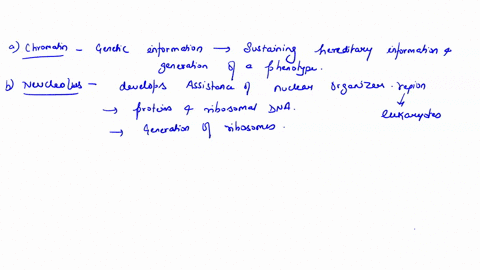 a) Chromatin - Genetic information → Sustaining hereditary information &
generation of a phenotype.
b) Neucleolus - develops Assistance of nuclear organizer region
→ proteins & ribosomal DNA.
eukaryotes
→ Generation of ribosomes.